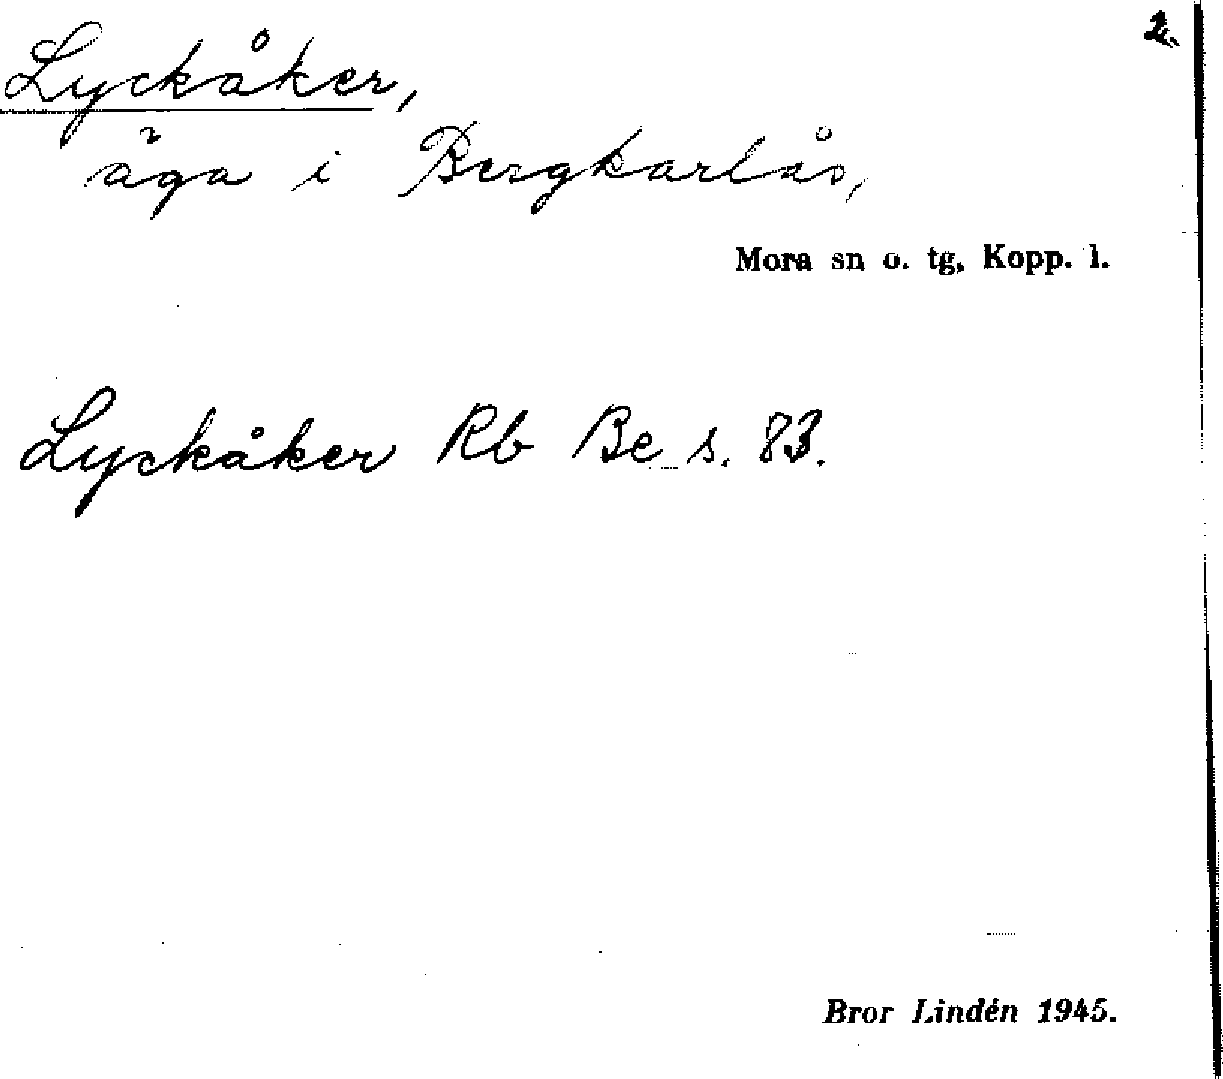 2.
Lyckåker,
äga i Bergkarlås,
Mora sn o. tg, Kopp. l.
Lyckåker Rb Be s. 83.
Bror Lindén 1945.